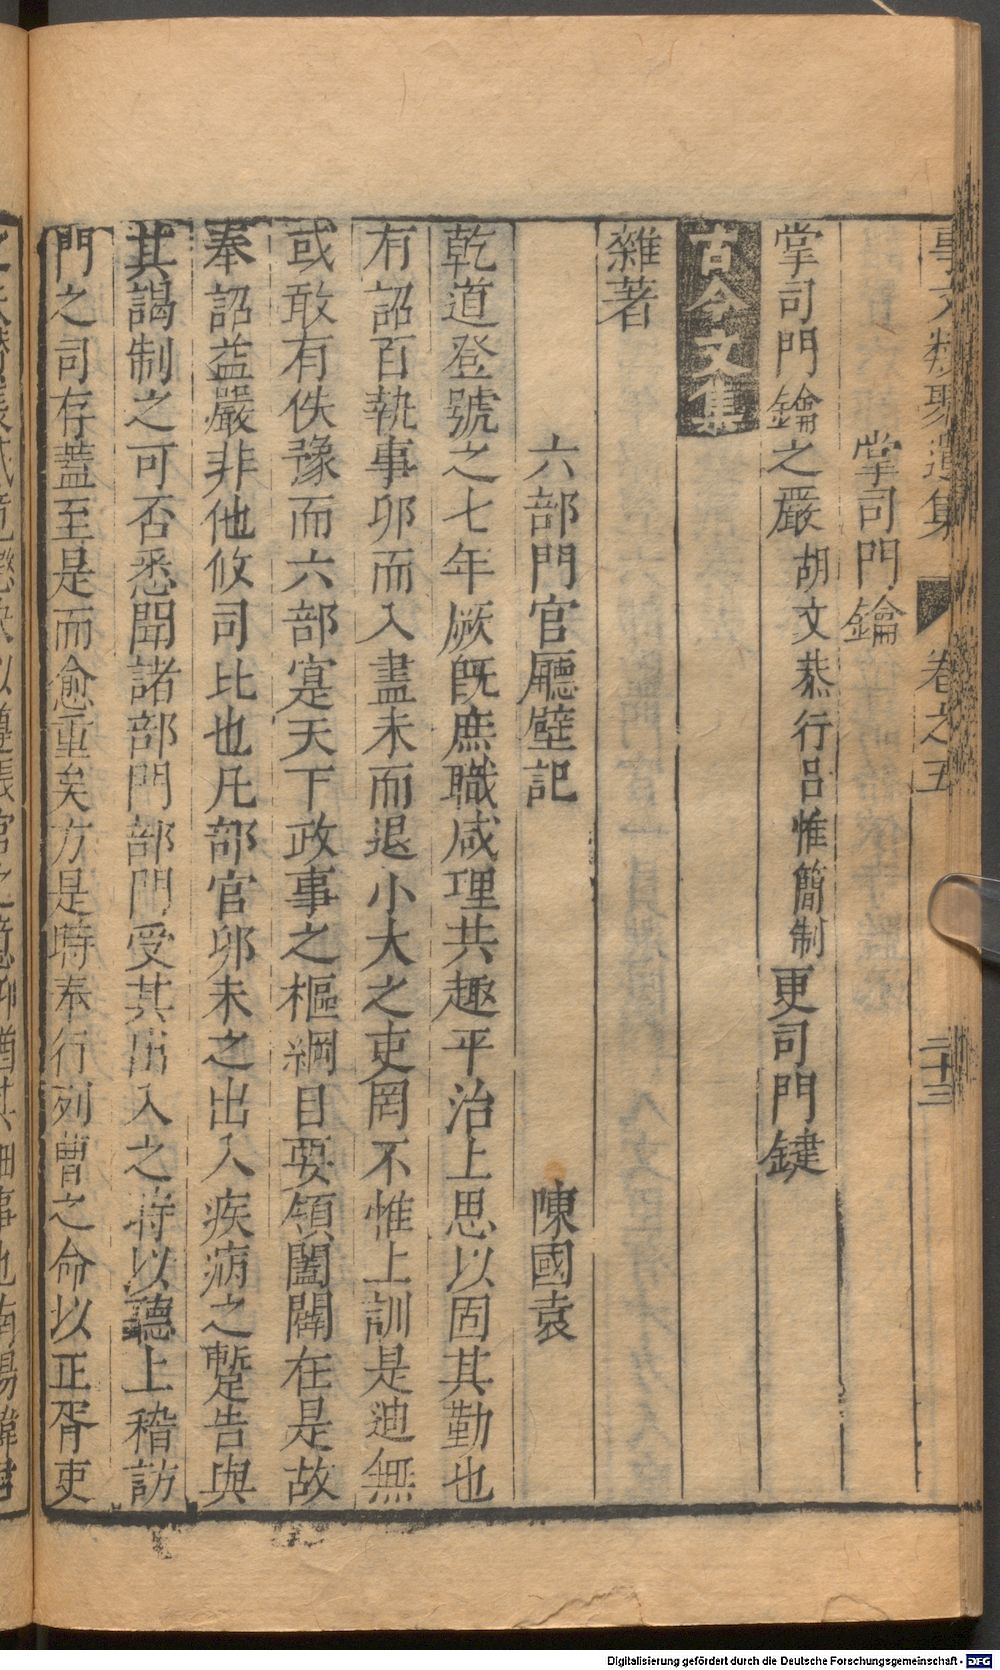 事文類聚遺集 卷之五 二十三
掌司門鑰
掌司門鑰之嚴胡文恭行呂惟簡制更司門鍵
古今文集
雜著
六部門官廳壁記 陳國袁
乾道登號之七年厥旣庶職咸理共趣平治上思以固其勤也
有詔百執事卯而入盡未而退小大之吏罔不惟上訓是迪無
或敢有佚豫而六部寔天下政事之樞綱目要領闔闢在是故
奉詔益嚴非他攸司比也凡部官卯未之出入疾病之蹔告與
其謁制之可否悉聞諸部門部門受其出入之時以聽上稽訪
門之司存蓋至是而愈重矣方是時奉行列曹之命以正胥吏
Digitalisierung gefördert durch die Deutsche Forschungsgemeinschaft - DFG